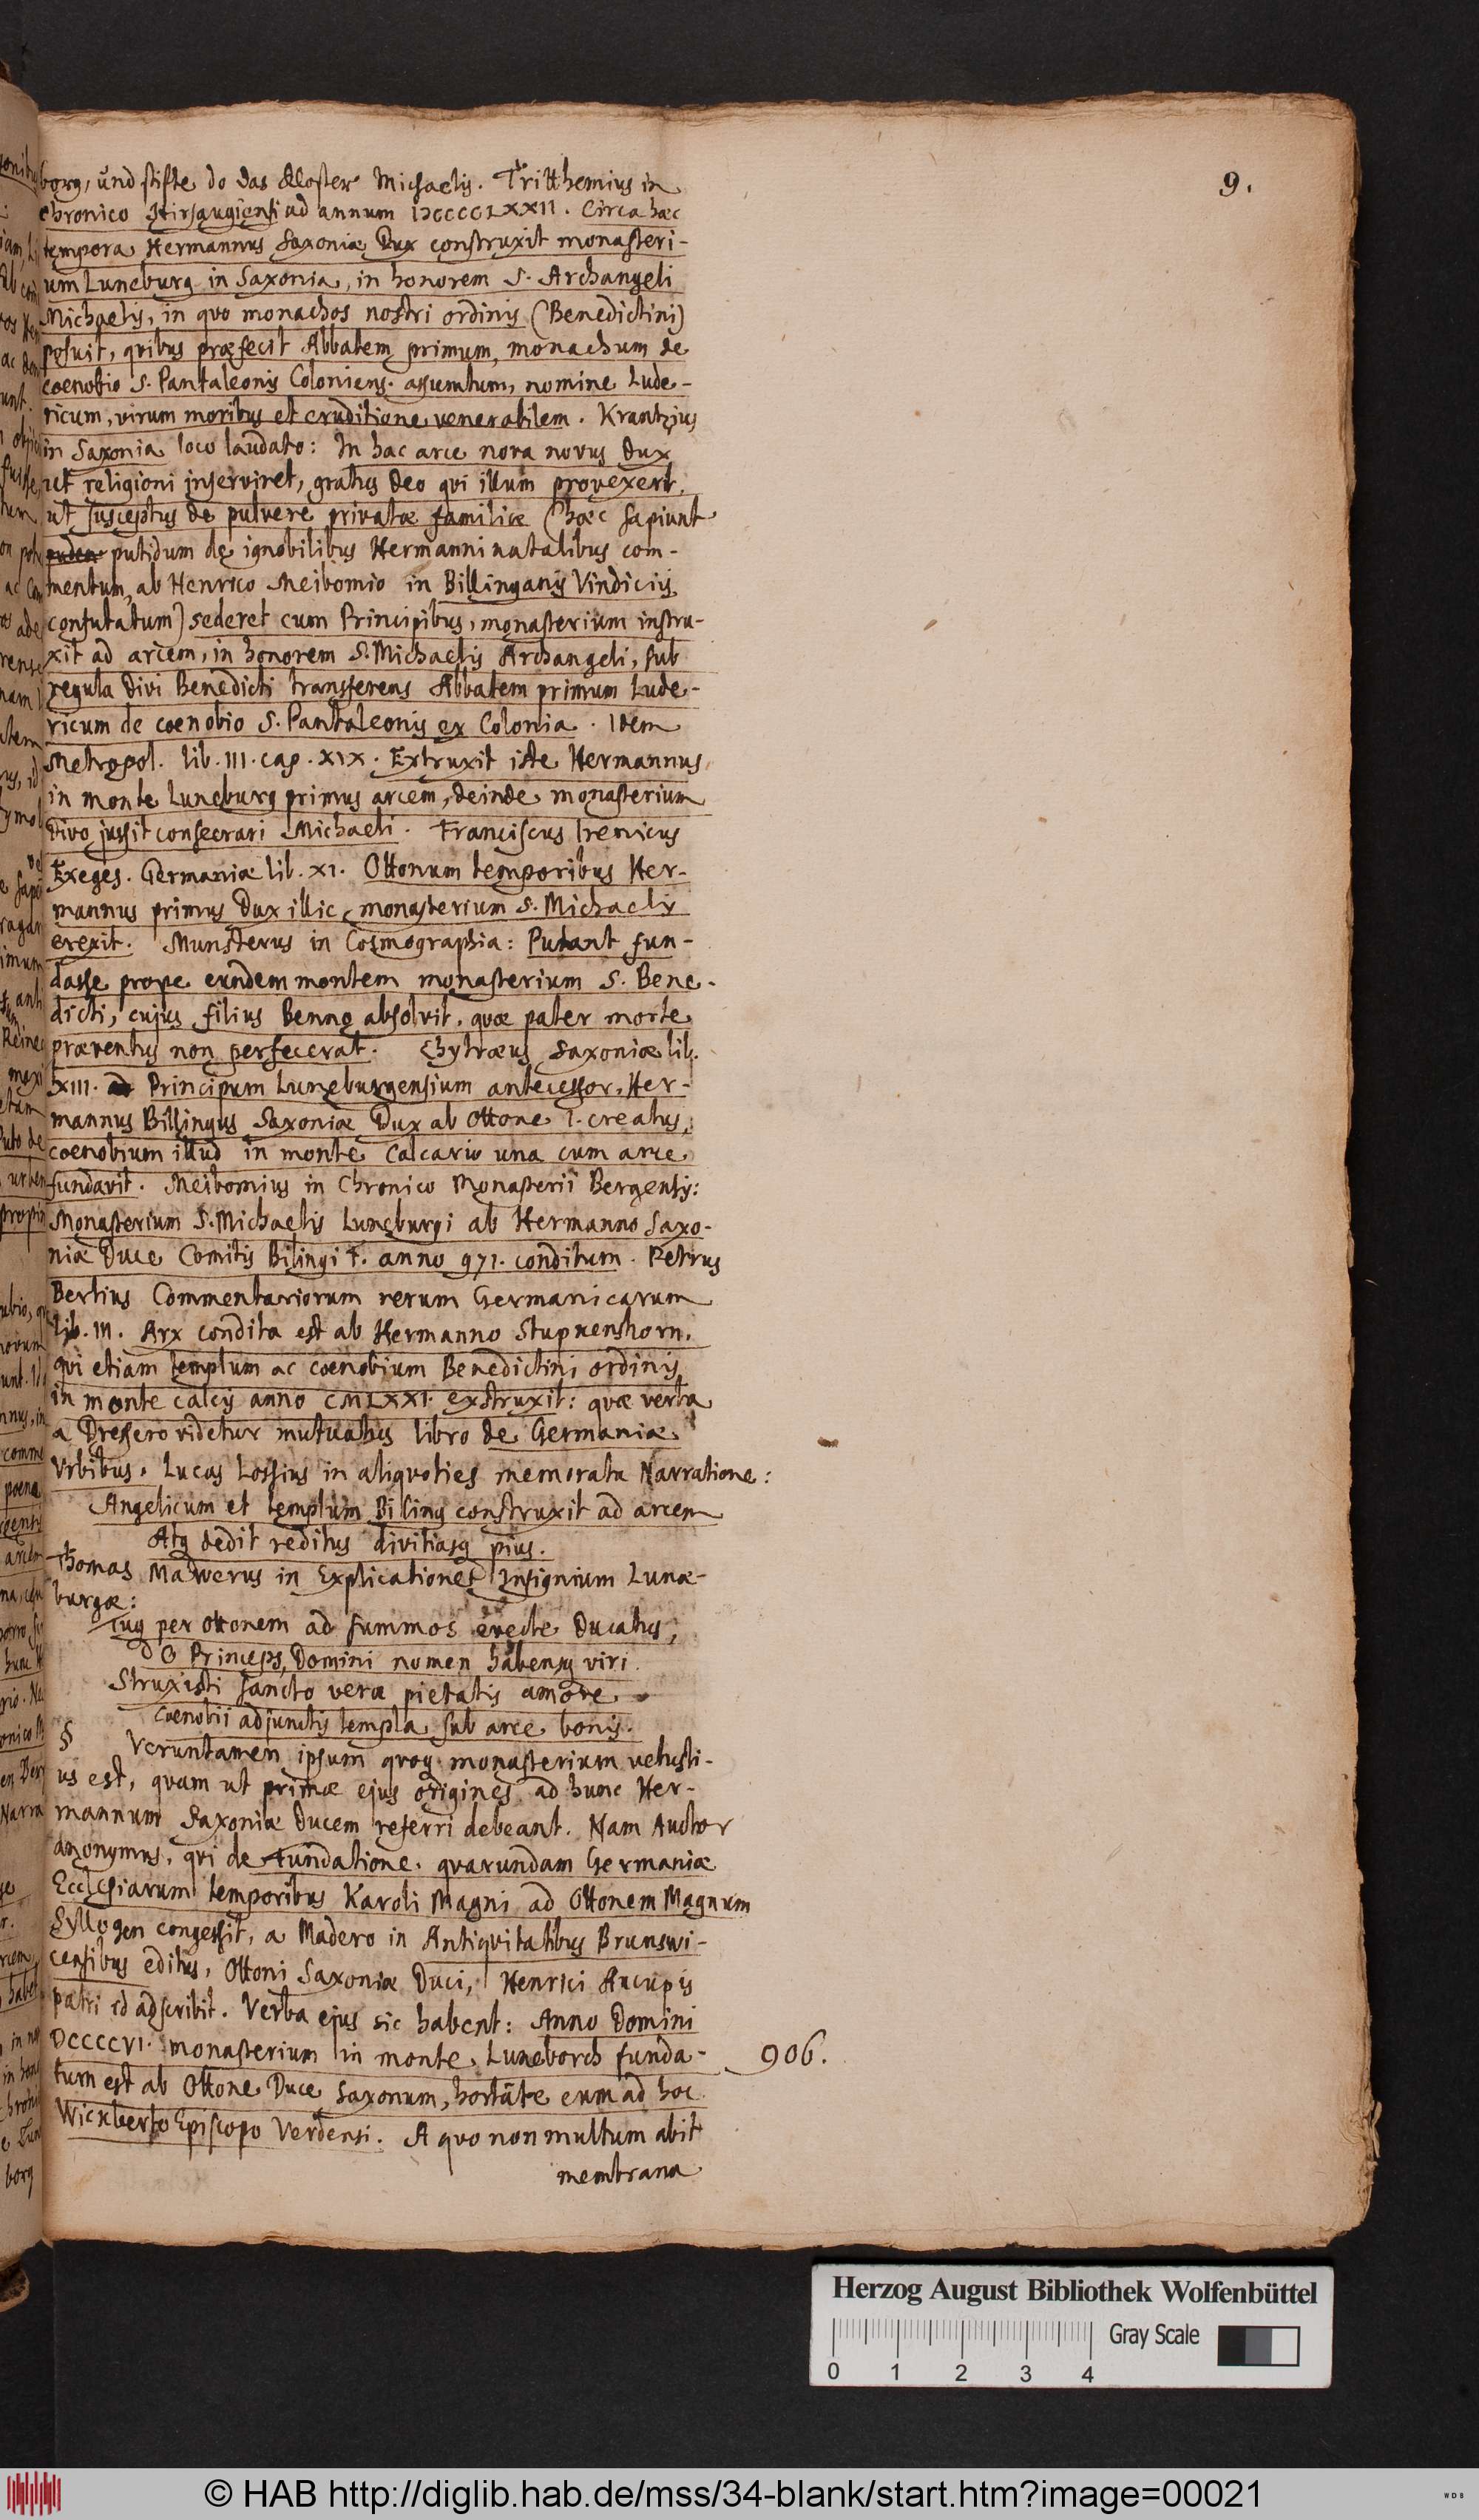 9.
borg, und stifte do das Kloster Michaelis. Tritthemius in
Chronico Hirsaugiensi ad annum DCCCCLXXII. Circa hæc
tempora Hermannus Saxoniæ Dux construxit monasteri-
um Luneburg in Saxonia, in honorem S. Archangeli
Michaelis, in quo monachos nostri ordinis (Benedictini)
posuit, quibus præfecit Abbatem primum, monachum de
coenobio S. Pantaleonis Coloniens. assumtum, nomine Lude-
ricum, virum moribus et eruditione venerabilem. Krantzius
in Saxonia loco laudato: In hac arce nova novus Dux
ut religioni inserviret, gratus Deo qui illum provexerit,
ut susceptus de pulvere privatæ familiæ (hæc sapiunt
putidum de ignobilibus Hermanni natalibus com-
mentum, ab Henrico Meibomio in Billinganis Vindiciis
confutatum) sederet cum Principibus, monasterium instru-
xit ad arcem, in honorem S. Michaelis Archangeli, sub
regula Divi Benedicti transferens Abbatem primum Lude-
ricum de coenobio S. Pantaleonis ex Colonia. Idem
Metropol. lib. III. cap. XIX. Extruxit iste Hermannus
in monte Luneburg primus arcem, deinde monasterium
Divo jussit consecrari Michaeli. Franciscus Irenicus
Exeges. Germaniæ lib. XI. Ottonum temporibus Her-
mannus primus Dux illic monasterium S. Michaelis
erexit. Munsterus in Cosmographia: Putant fun-
dasse prope eundem montem monasterium S. Bene-
dicti, cujus filius Benno absolvit, quæ pater morte
præventus non perfecerat. Chytræus Saxoniæ lib.
XIII. Principum Luneburgensium antecessor, Her-
mannus Billingus Saxoniæ Dux ab Ottone I. creatus,
coenobium illud in monte Calcario una cum arce
fundavit. Meibomius in Chronico Monasterii Bergensis:
Monasterium S. Michaelis Luneburgi ab Hermanno Saxo-
niæ Duce Comitis Bilingi F. anno 971. conditum. Petrus
Bertius Commentariorum rerum Germanicarum
Lib. III. Arx condita est ab Hermanno Stupkenshorn,
qui etiam templum ac coenobium Benedictini ordinis
in monte calcis anno CMLXXI. exstruxit: quæ verba
a Dressero videtur mutuatus libro de Germaniæ
Urbibus. Lucas Lossius in aliquoties memorata Narratione:
Angelicum et templum Biling construxit ad arcem
Atq dedit reditus divitiasq pius.
Thomas Mawerus in Explicatione Insignium Lunæ-
burgæ:
Tuq per Ottonem ad summos evecte Ducatus,
O Princeps, Domini nomen habensq viri.
Struxisti sancto veræ pietatis amore
Coenobii adjunctis templa sub arce bonis.
§ Veruntamen ipsum quoq monasterium vetusti-
us est, quam ut primæ ejus origines ad hunc Her-
mannum Saxoniæ Ducem referri debeant. Nam Auctor
anonymus, qui de Fundatione quarundam Germaniæ
Ecclesiarum temporibus Karoli Magni ad Ottonem Magnum
Syllogen congessit, a Madero in Antiquitatibus Brunswi-
censibus editus, Ottoni Saxoniæ Duci, Henrici Aucupis
patri id adscribit. Verba ejus sic habent: Anno Domini
DCCCCVI. monasterium in monte Luneborch funda-
tum est ab Ottone Duce Saxonum, hortāte eum ad hoc
Wickberto Episcopo Verdensi. A quo non multum abit
membrana
906.
Herzog August Bibliothek Wolfenbüttel
Gray Scale
0 1 2 3 4
© HAB http://diglib.hab.de/mss/34-blank/start.htm?image=00021
WDB